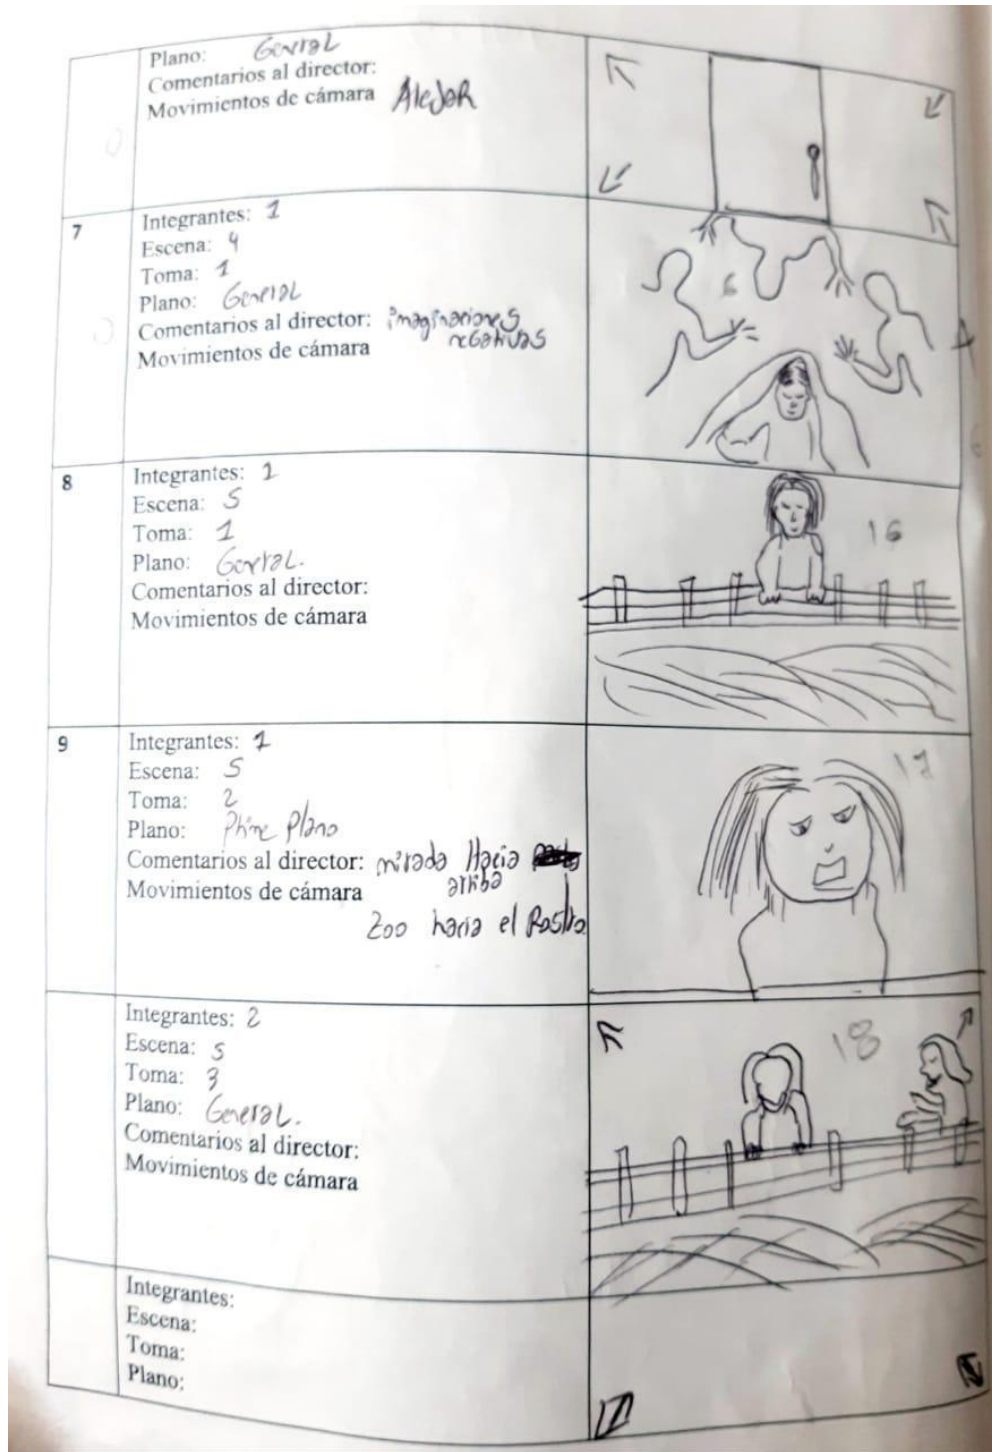 Plano: General
Comentarios al director:
Movimientos de cámara Alejar
7
Integrantes: 1
Escena: 4
Toma: 1
Plano: General
Comentarios al director: imaginaciones
negativas
Movimientos de cámara
6
8
Integrantes: 1
Escena: 5
Toma: 1
Plano: General.
Comentarios al director:
Movimientos de cámara
16
9
Integrantes: 1
Escena: 5
Toma: 2
Plano: Prime Plano
Comentarios al director: mirada Hacia
arriba
Movimientos de cámara
Zoo hacia el Rostro
17
Integrantes: 2
Escena: 5
Toma: 3
Plano: General.
Comentarios al director:
Movimientos de cámara
18
Integrantes:
Escena:
Toma:
Plano: